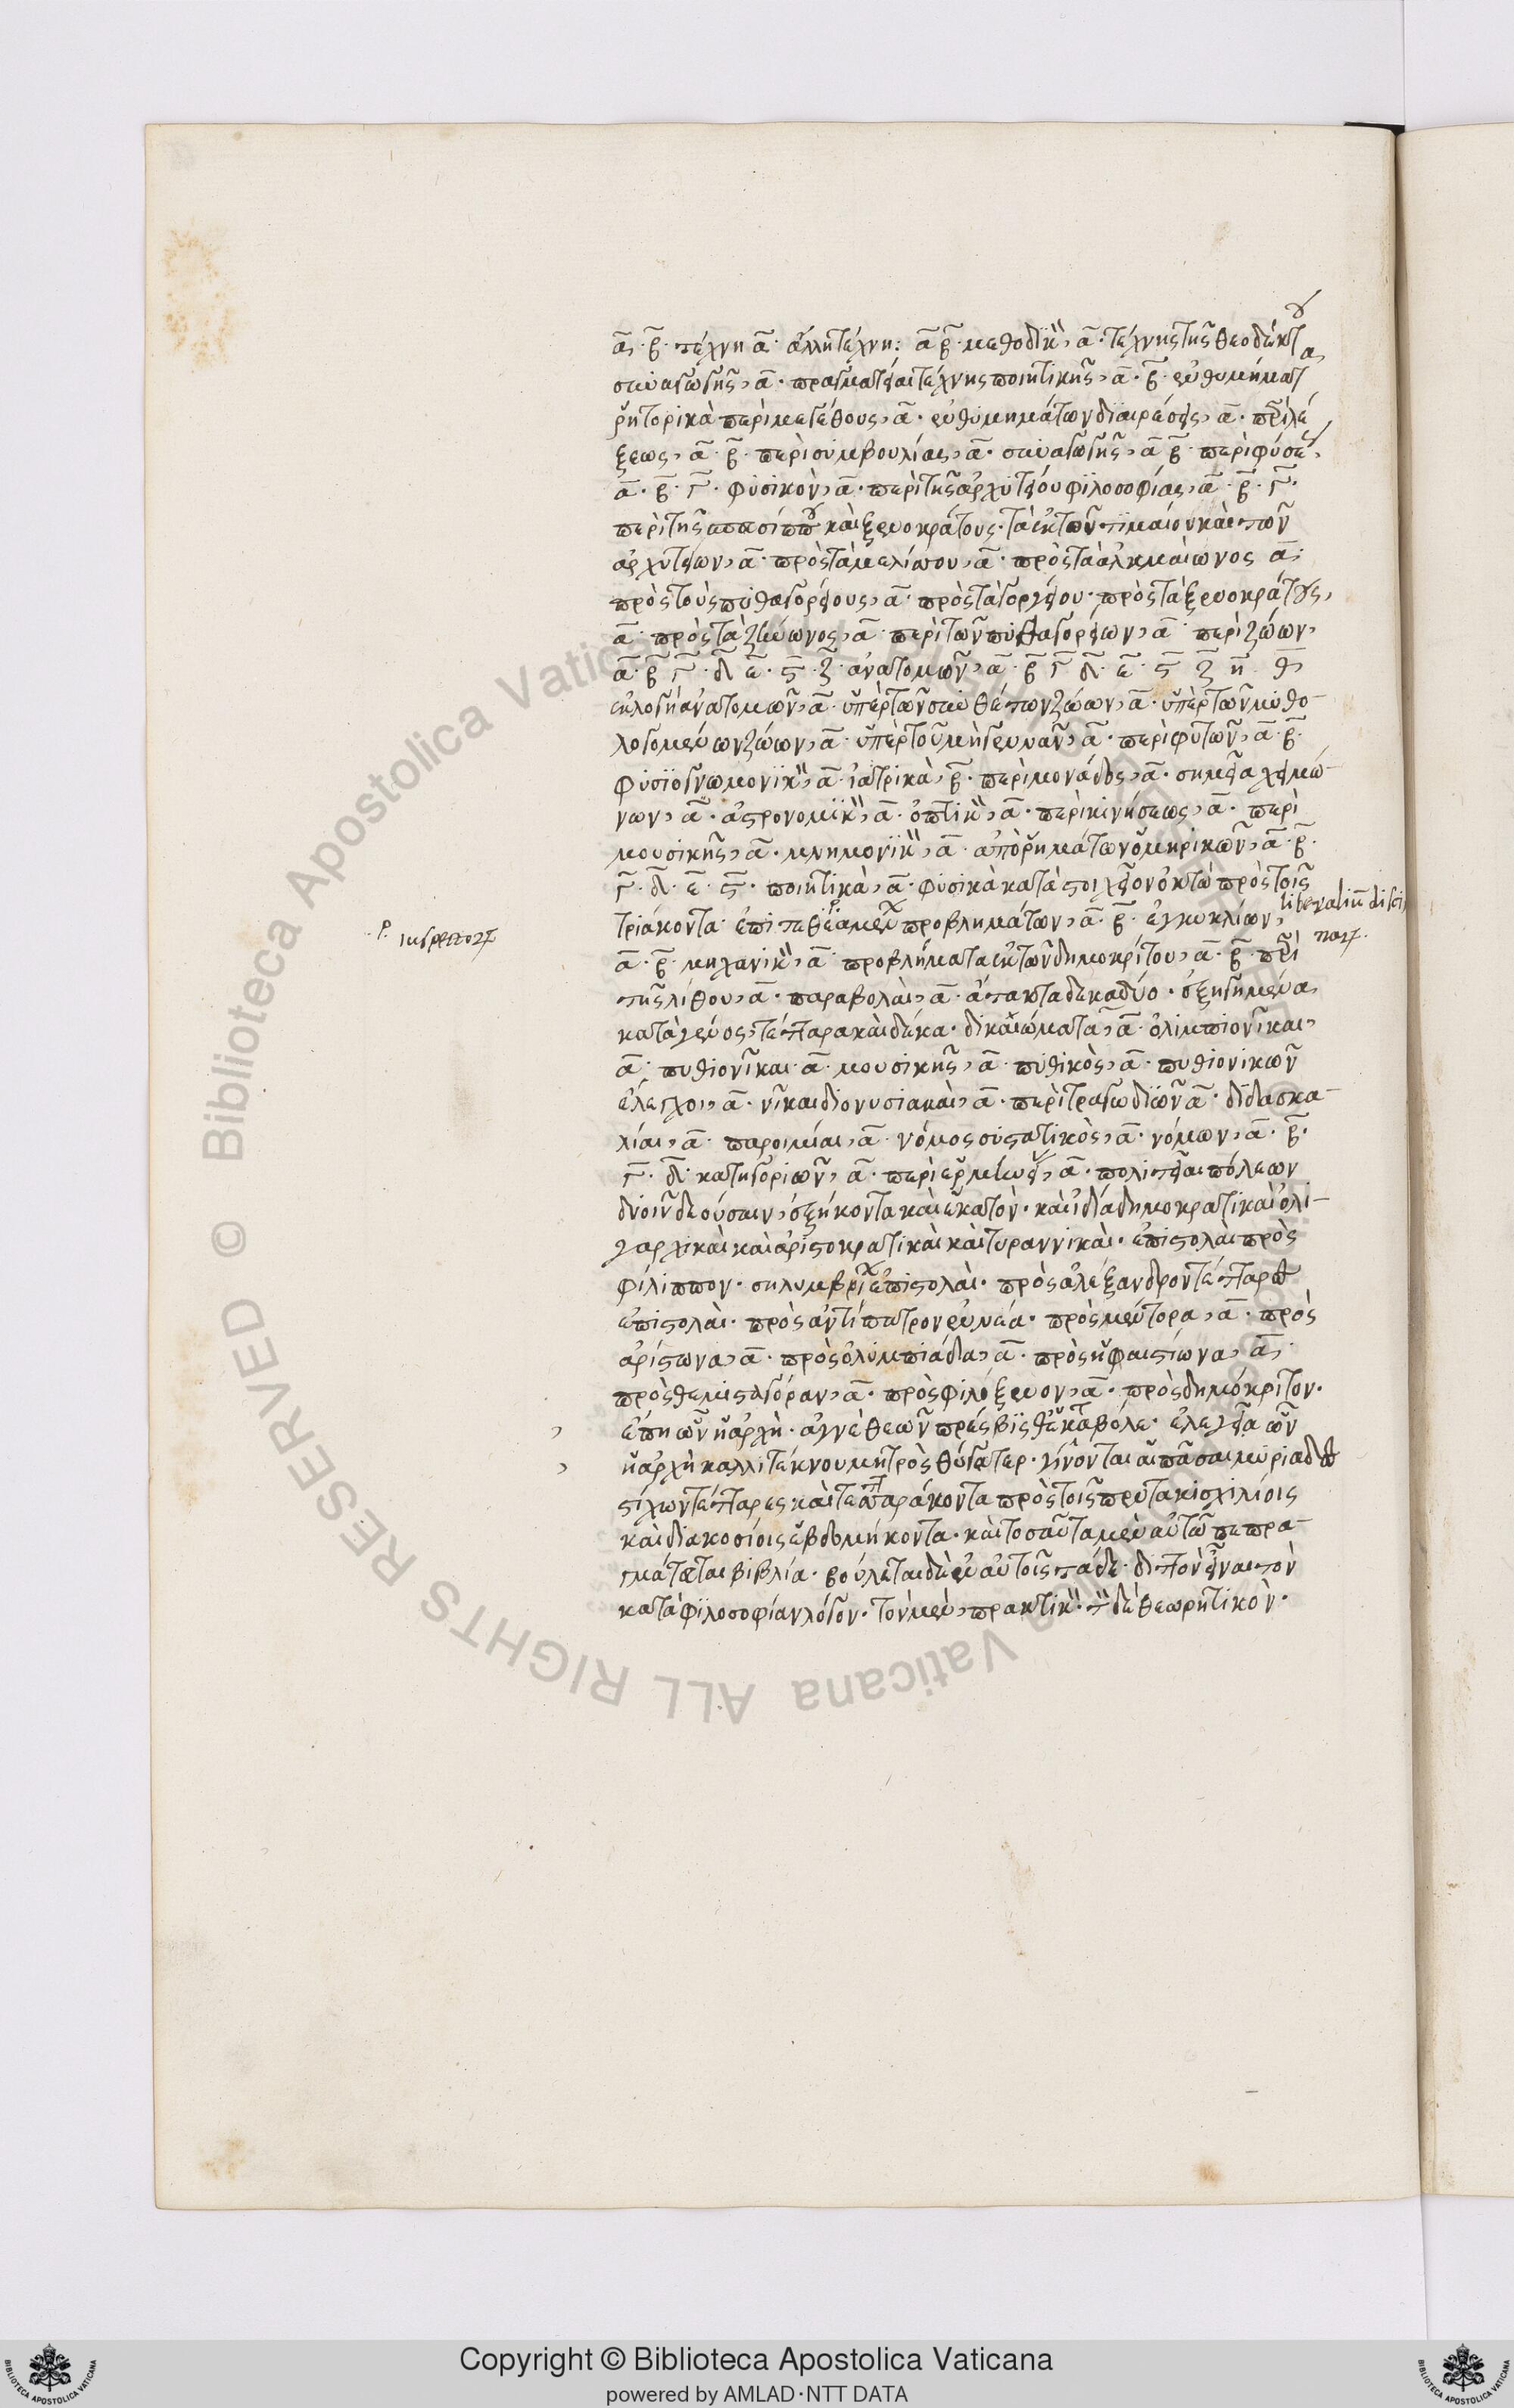 α̅· β̅· τέχνη α̅· ἄλλη τέχνη: α̅ β̅· μεθοδικ(ὸν) α̅· τέχνης τῆς θεοδέκτου
συναγωγῆς, α̅· πραγματεία τέχνης ποιητικῆς, α̅· β̅· ἐνθυμήματα
ῥητορικὰ περὶ μεγέθους, α̅· ἐνθυμημάτων διαιρέσεις, α̅· περὶ λέ
ξεως, α̅· β̅· περὶ συμβουλίας, α̅· συναγωγῆς, α̅ β̅· περὶ φύσεως,
α̅· β̅· γ̅· φυσικὸν, α̅· περὶ τῆς ἀρχυτείου φιλοσοφίας, α̅· β̅· γ̅·
περὶ τῆς σπευσίππου καὶ ξενοκράτους· τὰ ἐκ τῶν τιμαίου καὶ τῶν
ἀρχυτείων, α̅· πρὸς τὰ μελίσσου, α̅· πρὸς τὰ ἀλκμαίωνος α̅·
πρὸς τοὺς πυθαγορείους, α̅· πρὸς τὰ γοργείου· πρὸς τὰ ξενοκράτους,
α̅· πρὸς τὰ ζήνωνος, α̅· περὶ τῶν πυθαγορείων, α̅· περὶ ζώων,
α̅· β̅ γ̅· δ̅ ε̅· ϛ̅· ζ̅· ἀνατομῶν, α̅· β̅ γ̅ δ̅· ε̅· ϛ̅ ζ̅ η̅· θ̅
ἐκλογὴ ἀνατομῶν, α̅· ὑπὲρ τῶν συνθέτων ζώων, α̅· ὑπὲρ τῶν μυθο-
λογομένων ζώων, α̅· ὑπὲρ τοῦ μὴ γεννᾶν, α̅· περὶ φυτῶν, α̅· β̅·
φυσιογνωμονικ(ὸν) α̅· ἰατρικὰ, β̅· περὶ μονάδος, α̅· σημεῖα χειμώ-
νων, α̅· ἀστρονομικ(ὸν) α̅· ὀπτικ(ὸν) α̅· περὶ κινήσεως, α̅· περὶ
μουσικῆς, α̅· μνημονικ(ὸν) α̅· ἀπορημάτων ὁμηρικῶν, α̅· β̅·
γ̅· δ̅· ε̅· ϛ̅· ποιητικὰ, α̅· φυσικὰ κατὰ στοιχεῖον ὀκτὼ πρὸς τοῖς
τριάκοντα· ἐπιτεθεαμένων προβλημάτων, α̅· β̅· ἐγκυκλίων, liberaliũ disci
.P. inspectorꝝ
α̅· β̅· μηχανικ(ὸν) α̅· προβλήματα ἐκ τῶν δημοκρίτου, α̅· β̅· περὶ narꝝ.
τῆς λίθου, α̅· παραβολαὶ, α̅· ἄτακτα δεκαδύο· ἐξηγημένα
κατὰ γένος, τέτταρα καὶ δέκα· δικαιώματα, α̅· ὀλιμπιονῖκαι,
α̅· πυθιονῖκαι α̅· μουσικῆς, α̅· πυθικὸς, α̅· πυθιονικῶν
ἔλεγχοι, α̅· νῖκαι διονυσιακαὶ, α̅· περὶ τραγωδιῶν α̅· διδασκα-
λίαι, α̅· παροιμίαι, α̅· νόμος συστατικὸς, α̅· νόμων, α̅· β̅·
γ̅· δ̅· κατηγοριῶν, α̅· περὶ ἑρμηνείας, α̅· πολιτεῖαι πόλεων
δυοῖν δεούσαιν, ἑξήκοντα καὶ ἑκατὸν· καὶ ἰδίᾳ δημοκρατικαὶ ὀλι-
γαρχικαὶ καὶ ἀριστοκρατικαὶ καὶ τυραννικαὶ· ἐπιστολαὶ πρὸς
φίλιππον· σηλυμβρίων ἐπιστολαὶ· πρὸς ἀλέξανδρον τέτταρες
ἐπιστολαὶ· πρὸς ἀντίπατρον ἐννέα· πρὸς μέντορα, α̅· πρὸς
ἀρίστωνα, α̅· πρὸς ὀλυμπιάδα, α̅· πρὸς ἡφαιστίωνα, α̅·
πρὸς θεμισταγόραν, α̅· πρὸς φιλόξενον, α̅· πρὸς δημόκριτον·
ἔπη ὧν ἡ ἀρχὴ· ἁγνὲ θεῶν πρέσβισθ' ἑκαταβόλε· ἐλεγεῖα ὧν
ἡ ἀρχὴ καλλιτέκνου μητρὸς θύγατερ· γίνονται αἱ πᾶσαι μυριάδες
στίχων τέτταρες καὶ τετταράκοντα πρὸς τοῖς πεντακισχιλίοις
καὶ διακοσίοις ἑβδομήκοντα· καὶ τοσαῦτα μὲν αὐτῷ πεπρα-
γμάτευται βιβλία· βούλεται δὲ ἐν αὐτοῖς τάδε· διττὸν εἶναι τὸν
κατὰ φιλοσοφίαν λόγον· τὸν μὲν, πρακτικ(ὸν)· τ(ὸν) δὲ θεωρητικὸν·
Copyright © Biblioteca Apostolica Vaticana
powered by AMLAD·NTT DATA